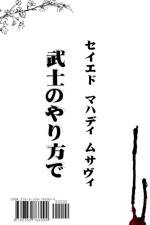 セイエド マハディ ムサヴィ
武士のやり方で